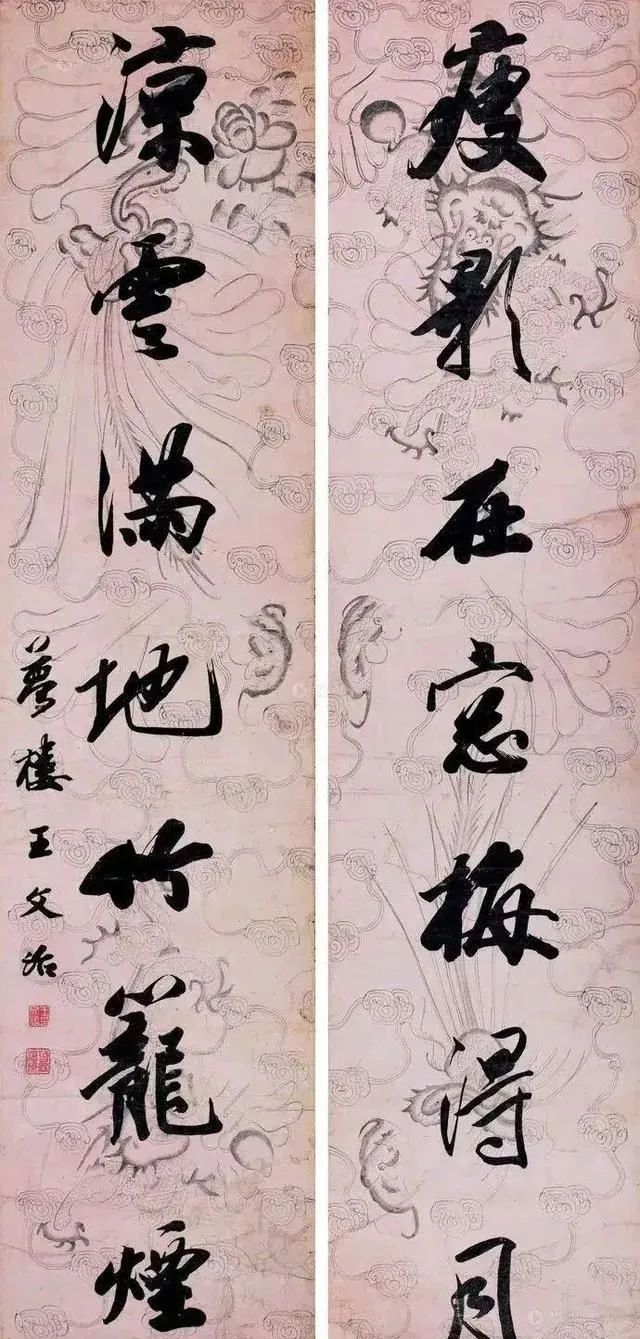 瘦影在窓梅得月
凉雲滿地竹籠煙
夢樓王文治